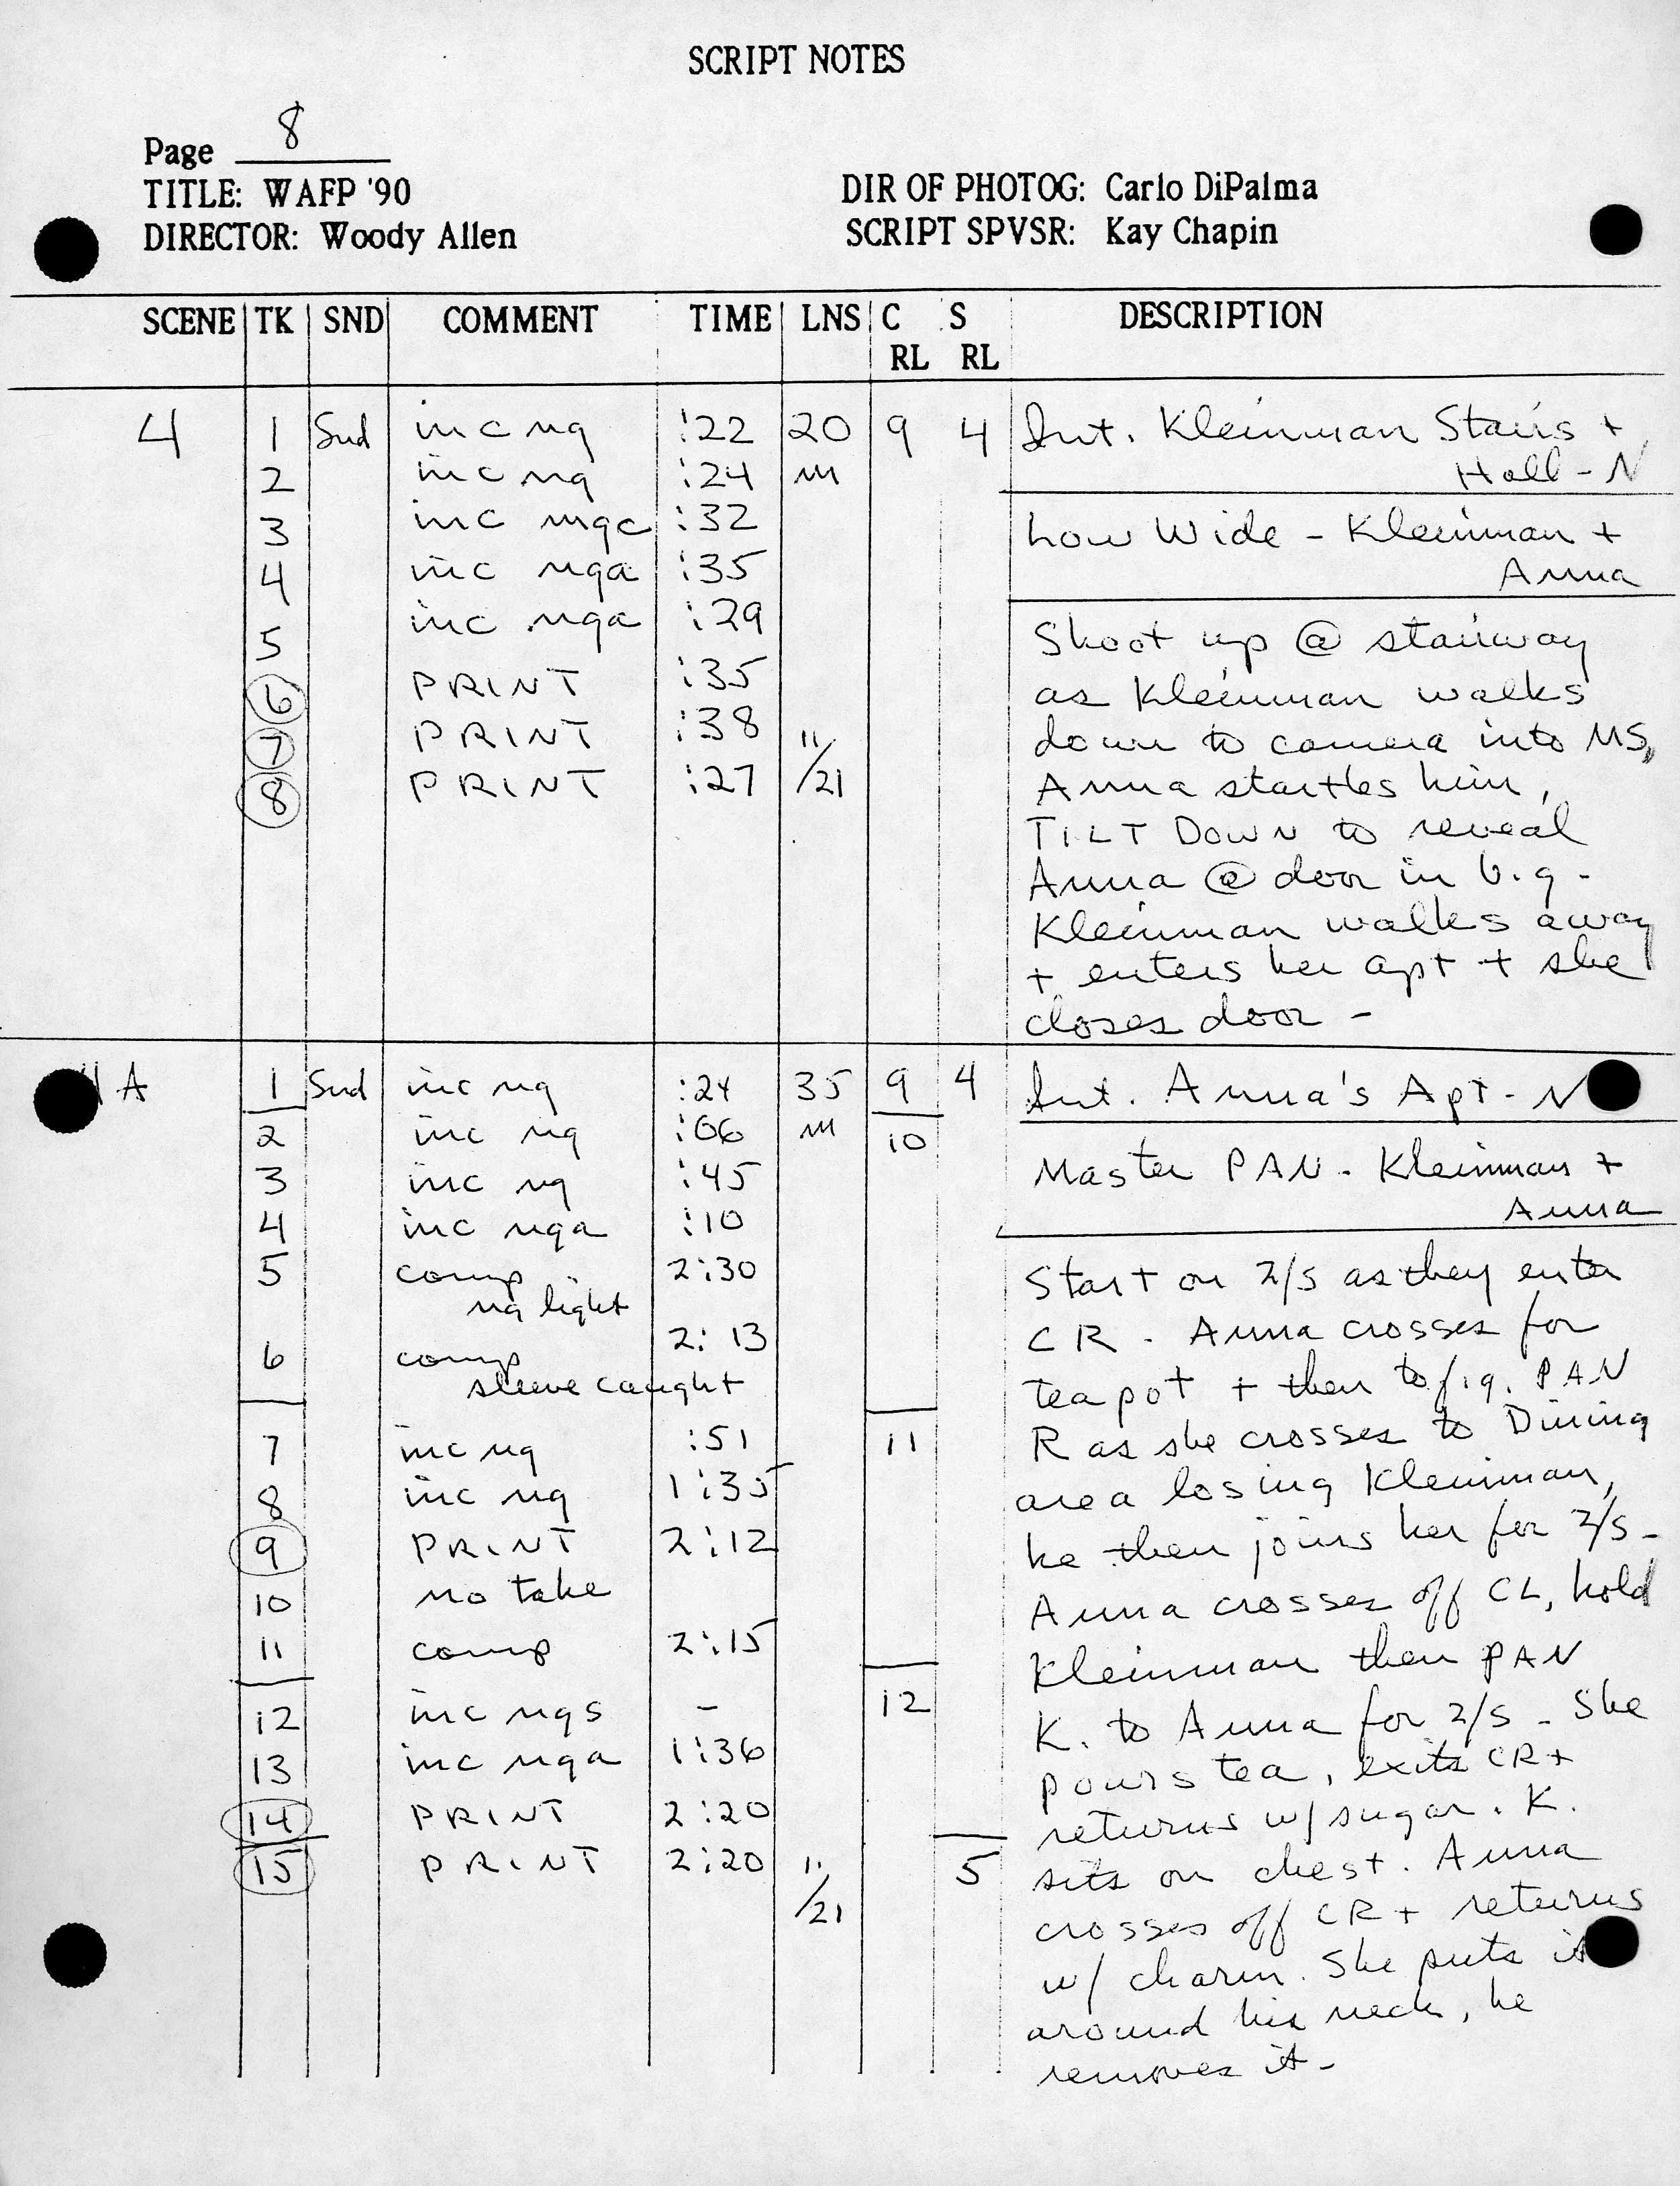 SCRIPT NOTES
Page 8
TITLE: WAFP '90
DIR OF PHOTOG: Carlo DiPalma
DIRECTOR: Woody Allen
SCRIPT SPVSR: Kay Chapin
SCENE TK SND COMMENT TIME LNS C RL S RL DESCRIPTION
4 1 Snd inc ng :22 20 9 4
2 inc ng :24 m
3 inc ngc :32
4 inc nga :35
5 inc nga :29
6 PRINT :35
7 PRINT :38
8 PRINT :27 11/21
Int. Kleinman Stairs +
Hall - N
Low Wide - Kleinman +
Anna
Shoot up @ stairway
as Kleinman walks
down to camera into MS,
Anna startles him,
TILT DOWN to reveal
Anna @ door in b.g.
Kleinman walks away
+ enters her apt + she
closes door -
A 1 Snd inc ng :24 35 9 4
2 inc ng :06 m 10
3 inc ng :45
4 inc nga :10
5 comp 2:30
ng light
6 comp 2:13
sleeve caught
7 inc ng :51 11
8 inc ng 1:35
9 PRINT 2:12
10 no take
11 comp 2:15
12 inc ngs - 12
13 inc nga 1:36
14 PRINT 2:20
15 PRINT 2:20 11/21 5
Int. Anna's Apt - N
Master PAN - Kleinman +
Anna
Start on 2/S as they enter
CR. Anna crosses for
teapot + then to f.g. PAN
R as she crosses to Dining
area losing Kleinman,
he then joins her for 2/S -
Anna crosses off CL, hold
Kleinman then PAN
K. to Anna for 2/S - She
pours tea, exits CR +
returns w/ sugar. K.
sits on chest. Anna
crosses off CR + returns
w/ charm. She puts it
around his neck, he
removes it -